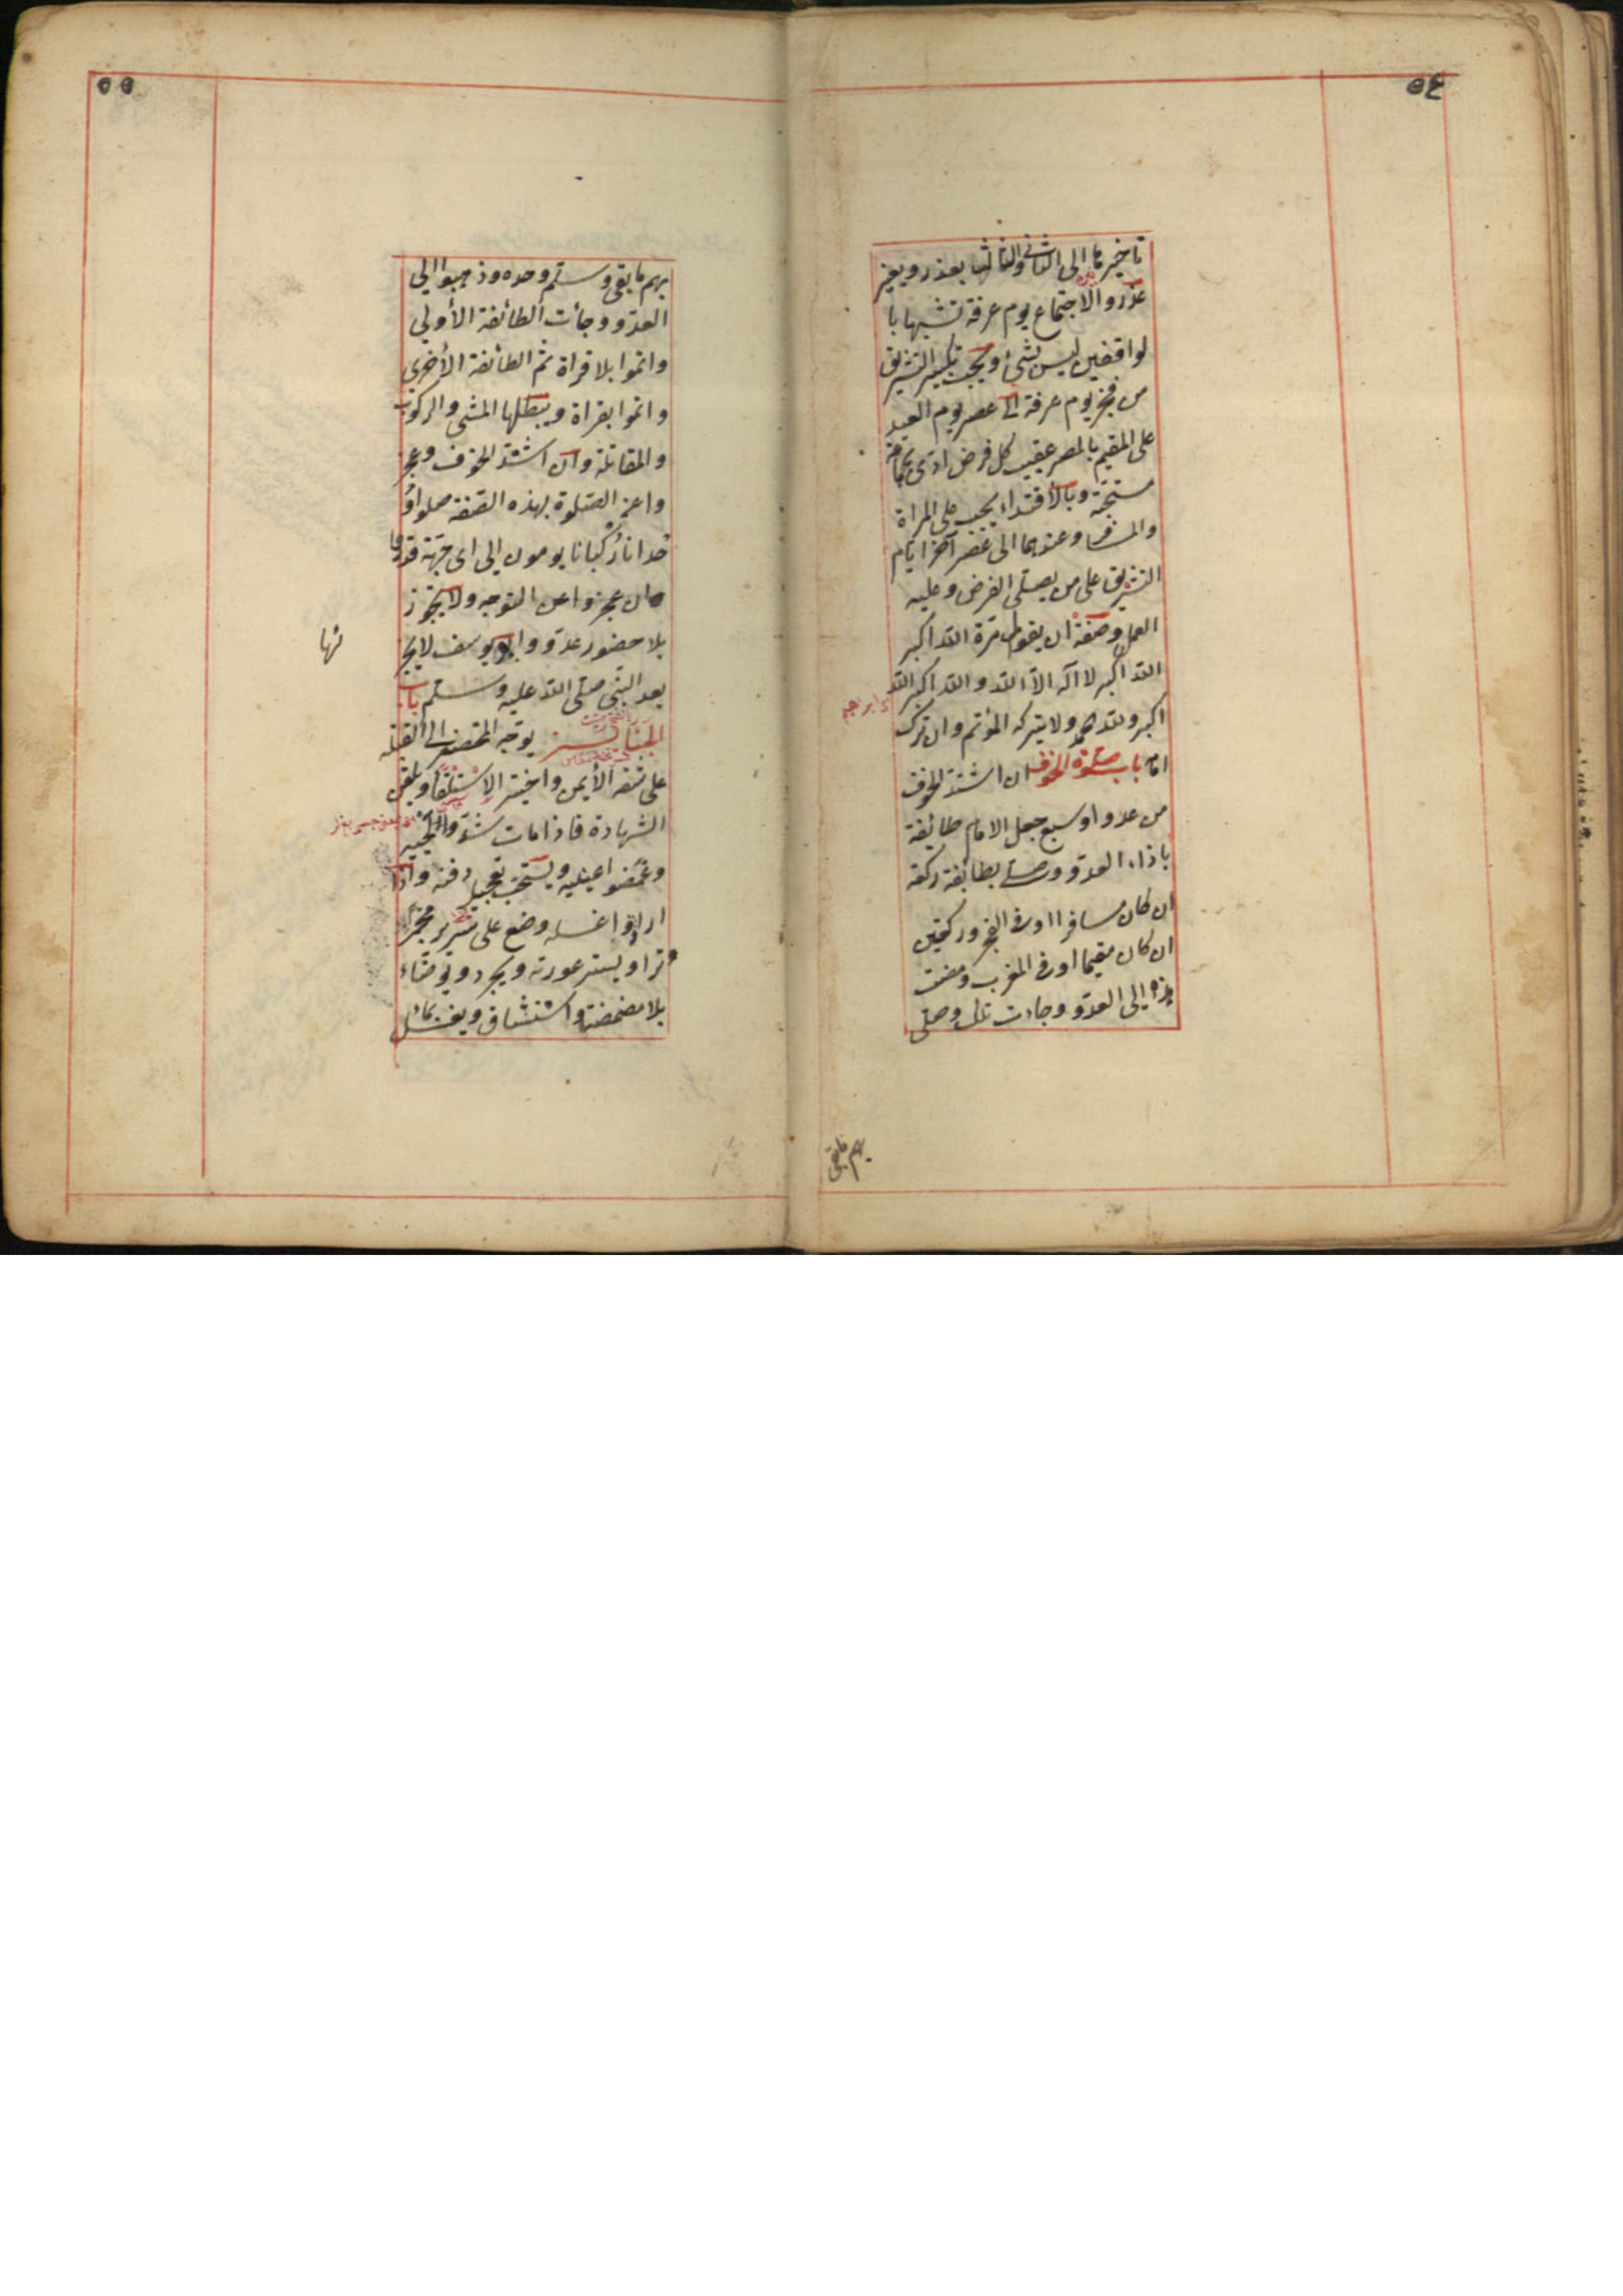 ٥٤
تاخيرها الى الثانى والثالث بعذر وبغير
عذر والاجتماع يوم عرفة تشبها با
لواقفين ليس بشئ ويجب تكبير التشريق
من فجر يوم عرفة الى عصر يوم العيد
على المقيم بالمصر عقيب كل فرض ادى بجماعة
مستحبة وبالاقتداء يجب على المراة
والمسافر وعندهما الى عصر آخر ايام
التشريق على من يصلى الفرض وعليه
العمل وصفته ان يقول مرة الله اكبر
الله اكبر لا اله الا الله والله اكبر الله
اكبر ولله الحمد ولا يتركه المؤتم وان ترك
امامه باب صلوة الخوف ان اشتد الخوف
من عدو او سبع جعل الامام طائفة
باذاء العدو وصلى بطائفة ركعة
ان كان مسافرا او فى الفجر وركعتين
ان كان مقيما او فى المغرب ومضت
هذه الى العدو وجاءت تلك وصلى
بهم مابقى
٥٥
بهم مابقى وسلم وحده وذهبوا الى
العدو وجأت الطائفة الأولى
واتموا بلا قراة ثم الطائفة الأخرى
واتموا بقراة ويبطلها المشى والركوب
والمقاتلة وان اشتد الخوف وعجز
واعن الصلوة بهذه الصفة صلوا و
حدانا ركبانا يومون الى اى جهة قدروا
وان عجزوا عن التوجه ولا تجوز
بلا حضور عدو وابو يوسف لا يجيز
ها
بعد النبى صلى الله عليه وسلم باب
الجنائز يوجه المحتضر الى القبلة
على شقه الأيمن واختير الاستلقاء ويلقن
الشهادة فاذا مات شدوا لحييه
وغمضوا عينيه ويستحب تعجيل دفنه واذا
ارادوا غسله وضع على سرير مجمر
وترا ويستر عورته ويجرد ويوضاء
بلا مضمضة واستنشاق ويغسل بمائ